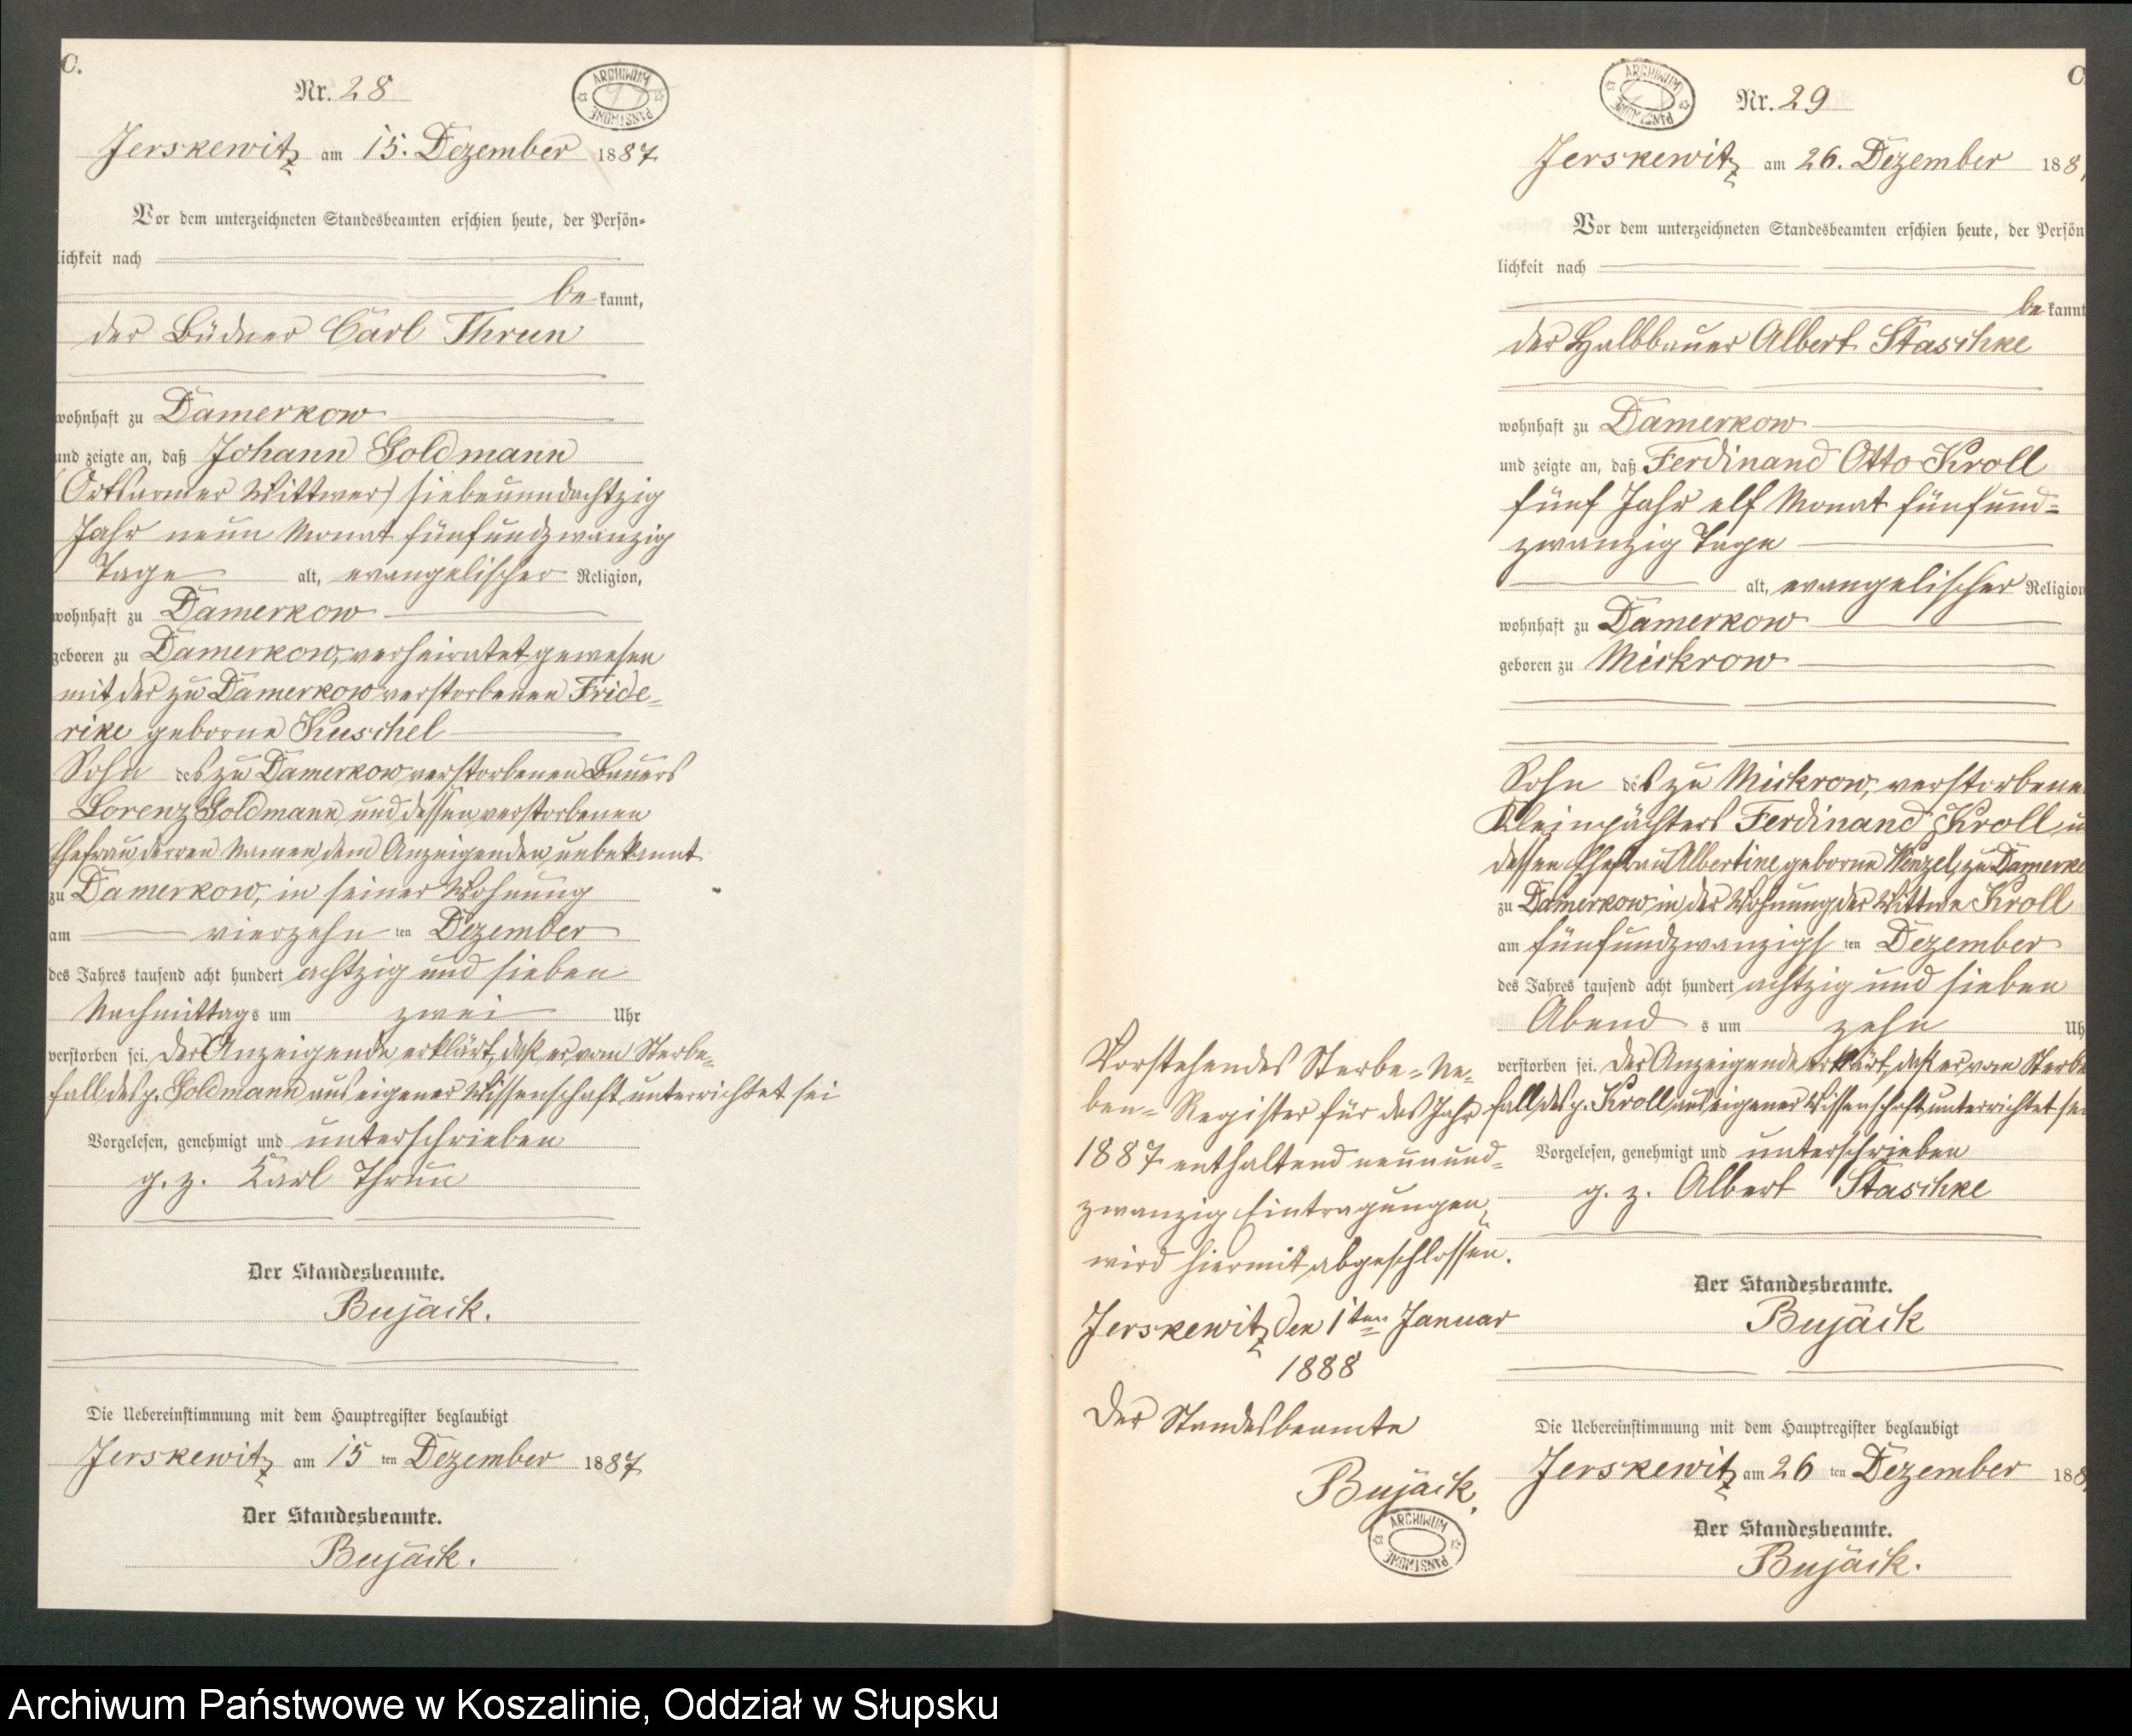 C.
Nr. 28
ARCHIWUM PAŃSTWOWE
Jerskewitz am 15. Dezember 1887
Vor dem unterzeichneten Standesbeamten erschien heute, der Persön-
lichkeit nach
be kannt,
der Büdner Carl Thrun
wohnhaft zu Damerkow
und zeigte an, daß Johann Goldmann
(Ortsarmer Wittwer) siebenundachtzig
Jahr neun Monat fünfundzwanzig
Tage alt, evangelischer Religion,
wohnhaft zu Damerkow
geboren zu Damerkow, verheiratet gewesen
mit der zu Damerkow verstorbenen Fride-
rike geborne Kuschel
Sohn des zu Damerkow verstorbenen Bauers
Lorenz Goldmann und dessen verstorbenen
Ehefrau derren Namen dem Anzeigenden unbekannt
zu Damerkow, in seiner Wohnung
am vierzehn ten Dezember
des Jahres tausend acht hundert achtzig und sieben
Nachmittags um zwei Uhr
verstorben sei. Der Anzeigende erklärt, daß er vom Sterbe-
fall des p. Goldmann aus eigener Wissenschaft unterrichtet sei
Vorgelesen, genehmigt und unterschrieben
g. z. Karl Thrun
Der Standesbeamte.
Bujack.
Die Uebereinstimmung mit dem Hauptregister beglaubigt
Jerskewitz am 15 ten Dezember 1887
Der Standesbeamte.
Bujack.
C
Nr. 29
ARCHIWUM PAŃSTWOWE
Jerskewitz am 26. Dezember 188
Vor dem unterzeichneten Standesbeamten erschien heute, der Persön
lichkeit nach
be kannt
der Halbbauer Albert Staschke
wohnhaft zu Damerkow
und zeigte an, daß Ferdinand Otto Kroll
fünf Jahr elf Monat fünfund-
zwanzig Tage
alt, evangelischer Religion
wohnhaft zu Damerkow
geboren zu Mickrow
Sohn des zu Mickrow, verstorbene
Kleinpächters Ferdinand Kroll, u
dessen Ehefrau Albertine geborne Wenzel, zu Damerko
zu Damerkow in der Wohnung der Wittwe Kroll
am fünfundzwanzigs ten Dezember
des Jahres tausend acht hundert achtzig und sieben
Abend s um zehn Uh
verstorben sei. Der Anzeigende erklärt, daß er vom Sterbe
fall des p. Kroll aus eigener Wissenschaft unterrichtet sei
Vorgelesen, genehmigt und unterschrieben
g. z. Albert Staschke
Der Standesbeamte.
Bujack
Die Uebereinstimmung mit dem Hauptregister beglaubigt
Jerskewitz am 26 ten Dezember 188
Der Standesbeamte.
Bujack.
Vorstehendes Sterbe-Ne-
ben-Register für das Jahr
1887 enthaltend neunund-
zwanzig Eintragungen,
wird hiermit abgeschlossen.
Jerskewitz den 1ten Januar
1888
Der Standesbeamte
Bujack.
ARCHIWUM PAŃSTWOWE
Archiwum Państwowe w Koszalinie, Oddział w Słupsku